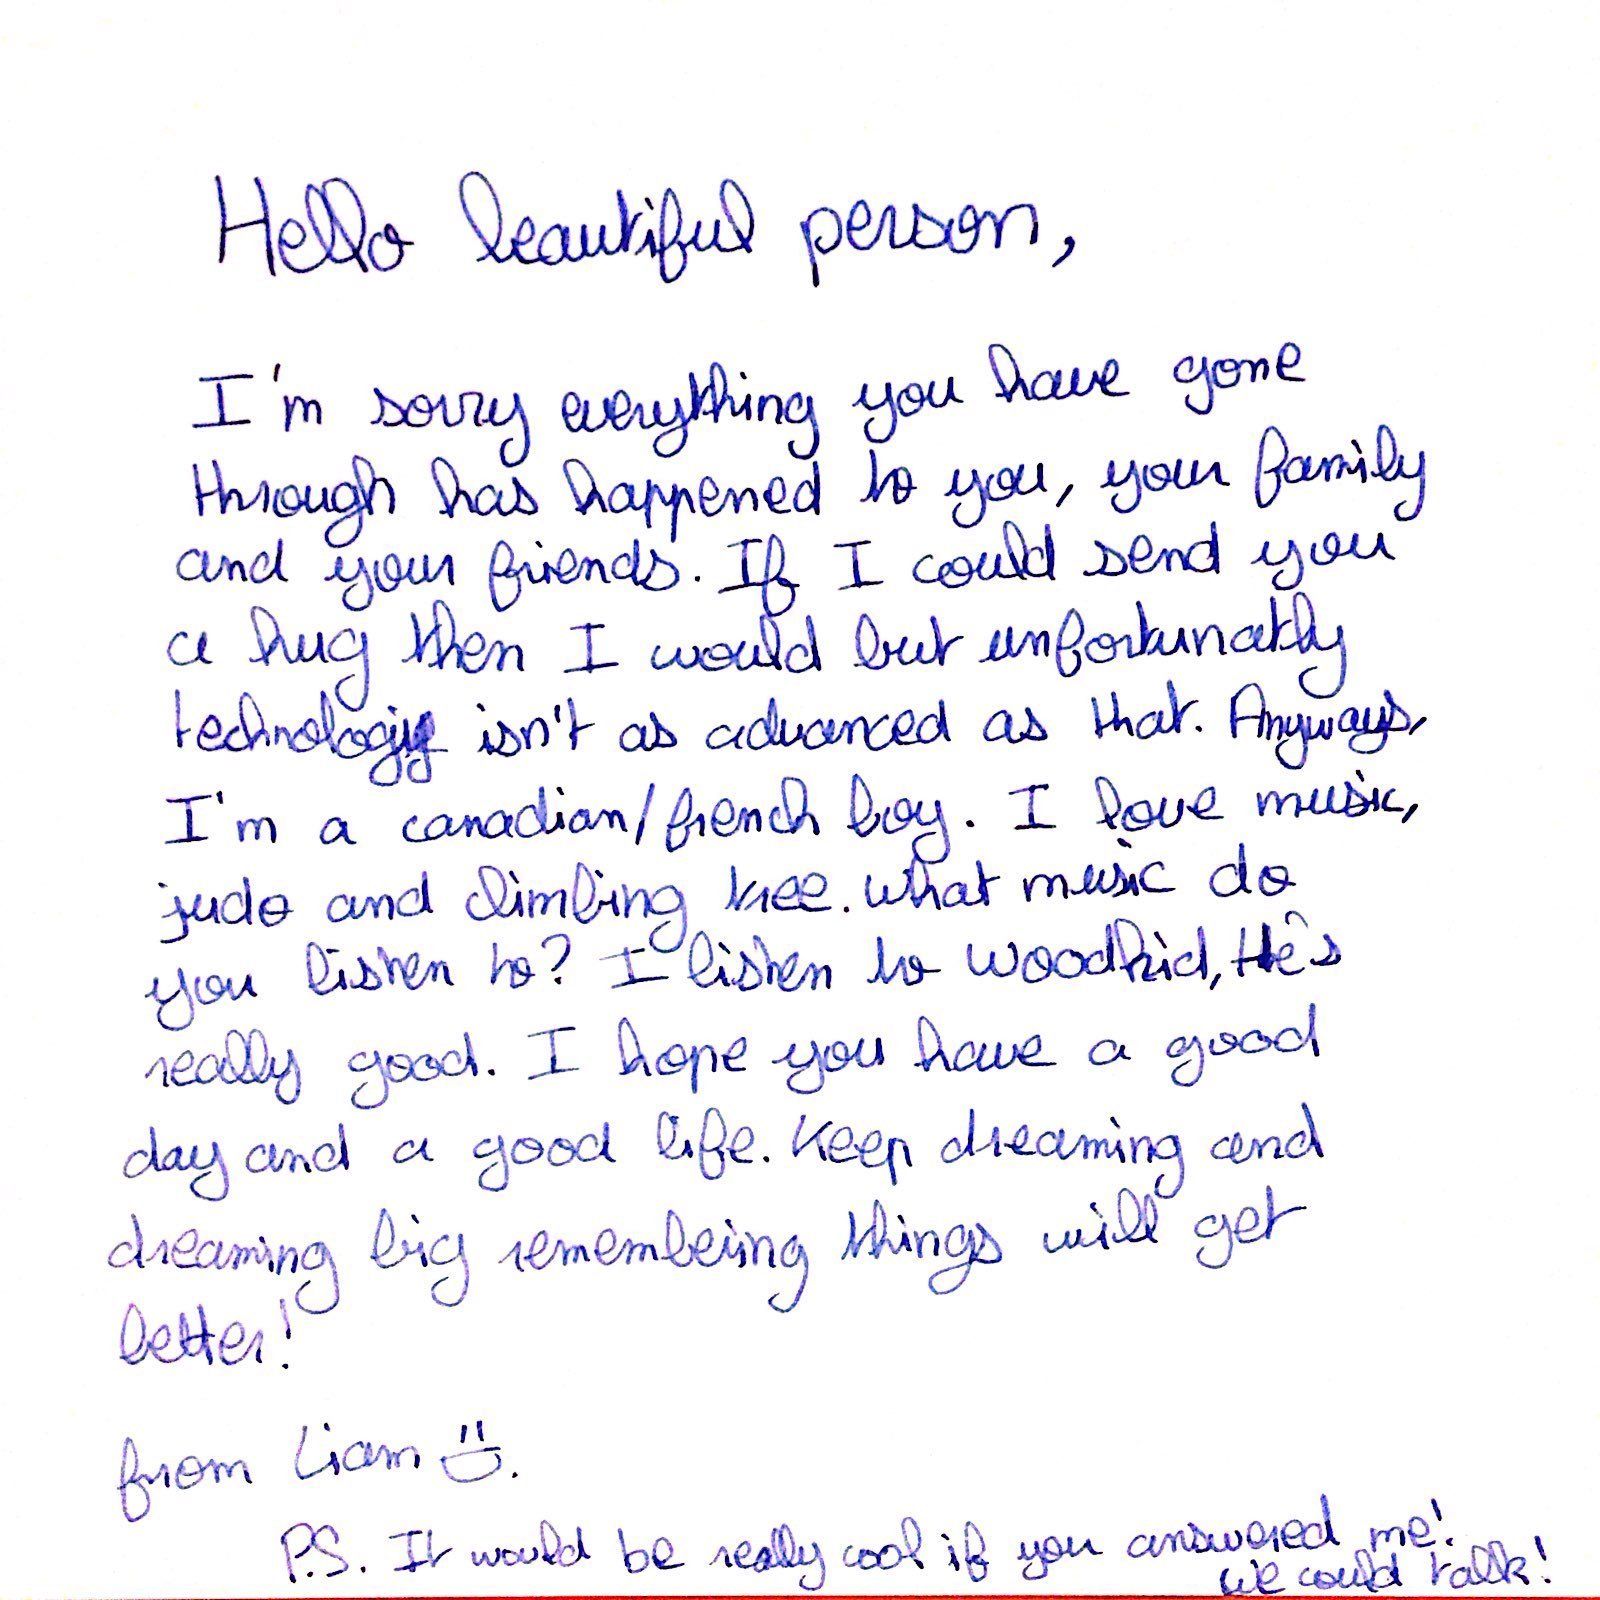 Hello beautiful person,
I'm sorry everything you have gone
through has happened to you, your family
and your friends. If I could send you
a hug then I would but unfortunatly
technology isn't as advanced as that. Anyways,
I'm a canadian/french boy. I love music,
judo and climbing tree. What music do
you listen to? I listen to Woodkid, He's
really good. I hope you have a good
day and a good life. Keep dreaming and
dreaming big remembering things will get
better!
from Liam
P.S. It would be really cool if you answered me!
We could talk!